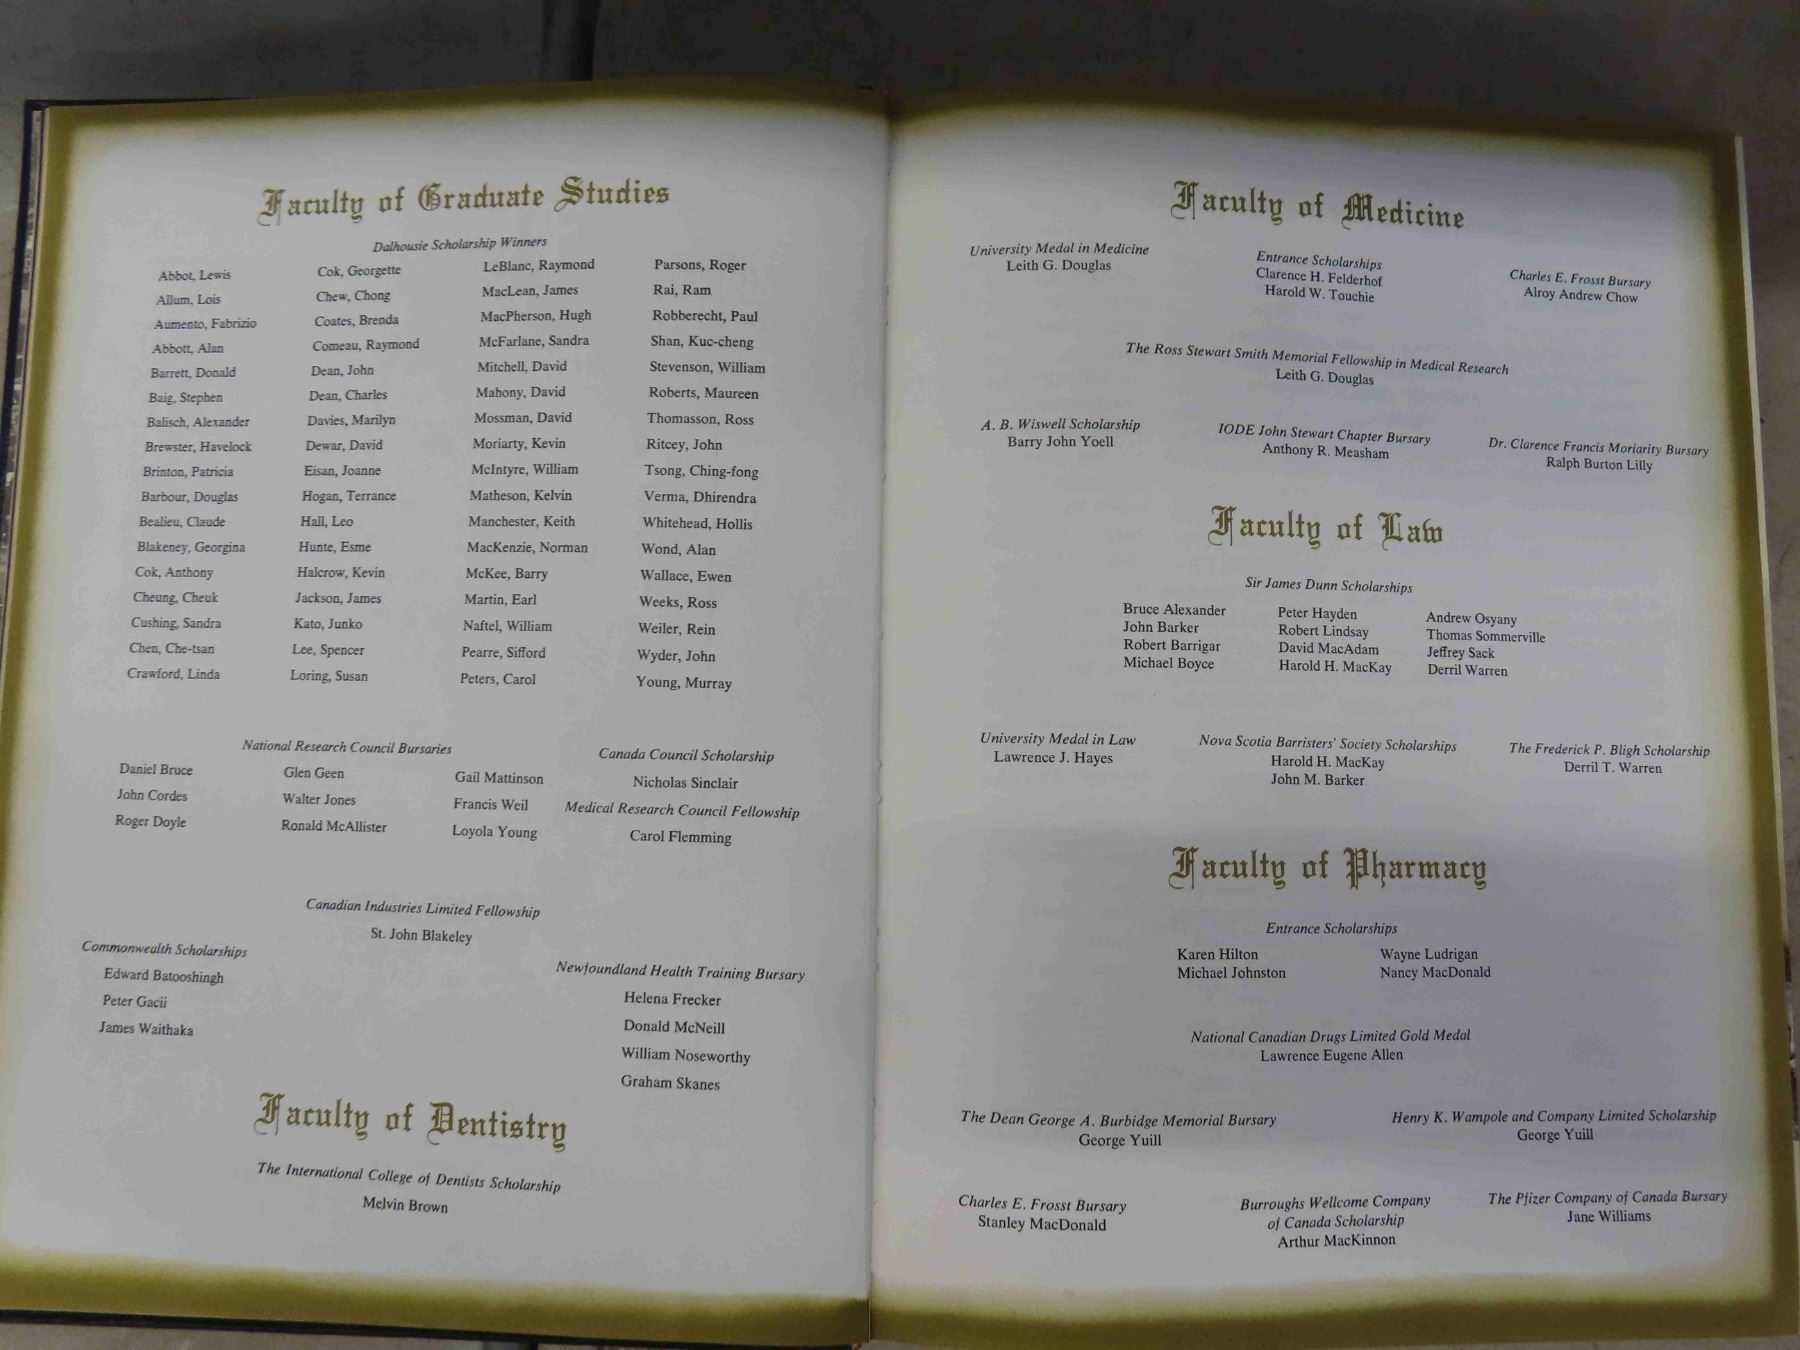 Faculty of Graduate Studies
Dalhousie Scholarship Winners
Abbot, Lewis
Allum, Lois
Aumento, Fabrizio
Abbott, Alan
Barrett, Donald
Baig, Stephen
Balisch, Alexander
Brewster, Havelock
Brinton, Patricia
Barbour, Douglas
Bealieu, Claude
Blakeney, Georgina
Cok, Anthony
Cheung, Cheuk
Cushing, Sandra
Chen, Che-tsan
Crawford, Linda
Cok, Georgette
Chew, Chong
Coates, Brenda
Comeau, Raymond
Dean, John
Dean, Charles
Davies, Marilyn
Dewar, David
Eisan, Joanne
Hogan, Terrance
Hall, Leo
Hunte, Esme
Halcrow, Kevin
Jackson, James
Kato, Junko
Lee, Spencer
Loring, Susan
LeBlanc, Raymond
MacLean, James
MacPherson, Hugh
McFarlane, Sandra
Mitchell, David
Mahony, David
Mossman, David
Moriarty, Kevin
McIntyre, William
Matheson, Kelvin
Manchester, Keith
MacKenzie, Norman
McKee, Barry
Martin, Earl
Naftel, William
Pearre, Sifford
Peters, Carol
Parsons, Roger
Rai, Ram
Robberecht, Paul
Shan, Kuc-cheng
Stevenson, William
Roberts, Maureen
Thomasson, Ross
Ritcey, John
Tsong, Ching-fong
Verma, Dhirendra
Whitehead, Hollis
Wond, Alan
Wallace, Ewen
Weeks, Ross
Weiler, Rein
Wyder, John
Young, Murray
National Research Council Bursaries
Daniel Bruce
John Cordes
Roger Doyle
Glen Geen
Walter Jones
Ronald McAllister
Gail Mattinson
Francis Weil
Loyola Young
Canada Council Scholarship
Nicholas Sinclair
Medical Research Council Fellowship
Carol Flemming
Canadian Industries Limited Fellowship
St. John Blakeley
Commonwealth Scholarships
Edward Batooshingh
Peter Gacii
James Waithaka
Newfoundland Health Training Bursary
Helena Frecker
Donald McNeill
William Noseworthy
Graham Skanes
Faculty of Dentistry
The International College of Dentists Scholarship
Melvin Brown
Faculty of Medicine
University Medal in Medicine
Leith G. Douglas
Entrance Scholarships
Clarence H. Felderhof
Harold W. Touchie
Charles E. Frosst Bursary
Alroy Andrew Chow
The Ross Stewart Smith Memorial Fellowship in Medical Research
Leith G. Douglas
A. B. Wiswell Scholarship
Barry John Yoell
IODE John Stewart Chapter Bursary
Anthony R. Measham
Dr. Clarence Francis Moriarity Bursary
Ralph Burton Lilly
Faculty of Law
Sir James Dunn Scholarships
Bruce Alexander
John Barker
Robert Barrigar
Michael Boyce
Peter Hayden
Robert Lindsay
David MacAdam
Harold H. MacKay
Andrew Osyany
Thomas Sommerville
Jeffrey Sack
Derril Warren
University Medal in Law
Lawrence J. Hayes
Nova Scotia Barristers' Society Scholarships
Harold H. MacKay
John M. Barker
The Frederick P. Bligh Scholarship
Derril T. Warren
Faculty of Pharmacy
Entrance Scholarships
Karen Hilton
Michael Johnston
Wayne Ludrigan
Nancy MacDonald
National Canadian Drugs Limited Gold Medal
Lawrence Eugene Allen
The Dean George A. Burbidge Memorial Bursary
George Yuill
Henry K. Wampole and Company Limited Scholarship
George Yuill
Charles E. Frosst Bursary
Stanley MacDonald
Burroughs Wellcome Company
of Canada Scholarship
Arthur MacKinnon
The Pfizer Company of Canada Bursary
Jane Williams